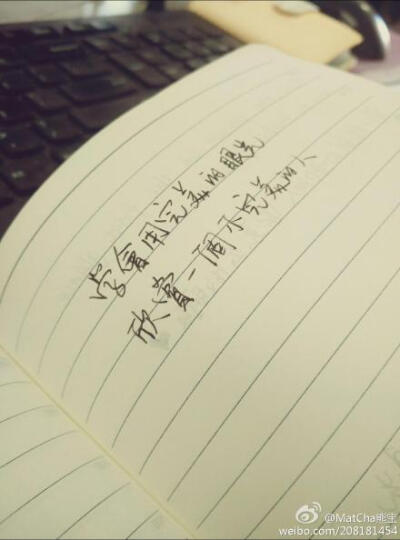 学會用完美的眼光
欣賞一個不完美的人
@MatCha熊宝
weibo.com/208181454